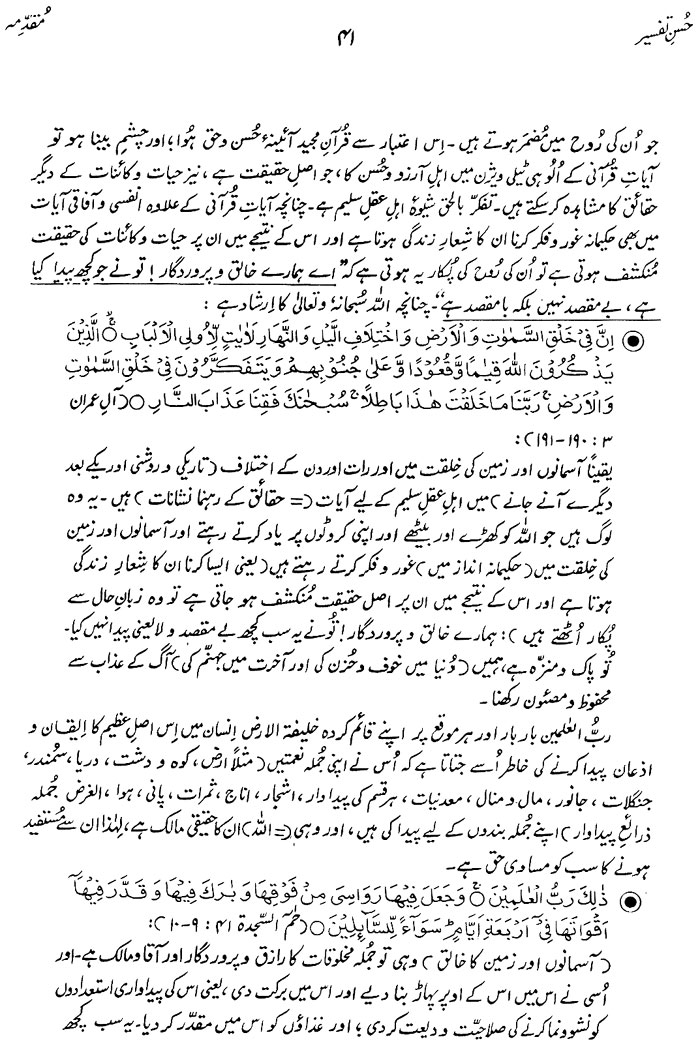 حُسنِ تفسیر ۴۱ مُقدّمہ
جو اُن کی رُوح میں مُضمَر ہوتے ہیں۔ اِس اعتبار سے قُرآنِ مجید آئینۂ حُسن و حق ہُوا؛ اور چشمِ بینا ہو تو
آیاتِ قُرآنی کے اُلُوہی ٹیلی ویژن میں اہلِ آرزو و حُسن کا، جو اصلِ حقیقت ہے، نیز حیات و کائنات کے دیگر
حقائق کا مشاہدہ کر سکتے ہیں۔ تفکّر بالحق شیوۂ اہلِ عقلِ سلیم ہے۔ چنانچہ آیاتِ قُرآنی کے علاوہ انفسی و آفاقی آیات
میں بھی حکیمانہ غور و فکر کرنا ان کا شعارِ زندگی ہوتا ہے اور اس کے نتیجے میں ان پر حیات و کائنات کی حقیقت
مُنکشف ہوتی ہے تو اُن کی رُوح کی پُکار یہ ہوتی ہے کہ ”اے ہمارے خالق و پروردگار! تو نے جو کچھ پیدا کیا
ہے، بے مقصد نہیں بلکہ با مقصد ہے“۔ چنانچہ اللہ سُبحانہٗ و تعالیٰ کا اِرشاد ہے:
◉ اِنَّ فِیۡ خَلۡقِ السَّمٰوٰتِ وَالۡاَرۡضِ وَاخۡتِلَافِ الَّیۡلِ وَالنَّهَارِ لَاٰیٰتٍ لِّاُولِی الۡاَلۡبَابِ ۝ الَّذِیۡنَ
یَذۡکُرُوۡنَ اللّٰهَ قِیٰمًا وَّقُعُوۡدًا وَّعَلٰی جُنُوۡبِهِمۡ وَیَتَفَکَّرُوۡنَ فِیۡ خَلۡقِ السَّمٰوٰتِ
وَالۡاَرۡضِ ۚ رَبَّنَا مَا خَلَقۡتَ هٰذَا بَاطِلًا ۚ سُبۡحٰنَكَ فَقِنَا عَذَابَ النَّارِ ۝ (آلِ عمران
۳ : ۱۹۰-۱۹۱):
یقیناً آسمانوں اور زمین کی خِلقت میں اور رات اور دن کے اختلاف (تاریکی و روشنی اور یکے بعد
دیگرے آنے جانے) میں اہلِ عقلِ سلیم کے لیے آیات (= حقائق کے رہنما نشانات) ہیں۔ یہ وہ
لوگ ہیں جو اللہ کو کھڑے اور بیٹھے اور اپنی کروٹوں پر یاد کرتے رہتے اور آسمانوں اور زمین
کی خِلقت میں (حکیمانہ انداز میں) غور و فکر کرتے رہتے ہیں (یعنی ایسا کرنا ان کا شعارِ زندگی
ہوتا ہے اور اس کے نتیجے میں ان پر اصل حقیقت مُنکشف ہو جاتی ہے تو وہ زبانِ حال سے
پُکار اُٹھتے ہیں): ہمارے خالق و پروردگار! تُو نے یہ سب کچھ بے مقصد و لا یعنی پیدا نہیں کیا۔
تُو پاک و منزّہ ہے، ہمیں (دُنیا میں خوف و حُزن کی اور آخرت میں جہنّم کی) آگ کے عذاب سے
محفوظ و مصئون رکھنا۔
ربُّ العٰلمین بار بار اور ہر موقع پر اپنے قائم کردہ خلیفۃ الارض انسان میں اِس اصلِ عظیم کا ایقان و
اذعان پیدا کرنے کی خاطر اُسے جتاتا ہے کہ اُس نے اپنی جُملہ نعمتیں (مثلاً ارض، کوہ و دشت، دریا، سمُندر،
جنگلات، جانور، مال و منال، معدنیات، ہر قسم کی پیداوار، اشجار، اناج، ثمرات، پانی، ہوا، الغرض جُملہ
ذرائعِ پیداوار) اپنے جُملہ بندوں کے لیے پیدا کی ہیں، اور وہی (= اللہ) ان کا حقیقی مالک ہے، لہٰذا ان سے مُستفید
ہونے کا سب کو مساوی حق ہے۔
◉ ذٰلِكَ رَبُّ الۡعٰلَمِیۡنَ ۝ وَجَعَلَ فِیۡهَا رَوَاسِیَ مِنۡ فَوۡقِهَا وَبٰرَكَ فِیۡهَا وَقَدَّرَ فِیۡهَاۤ
اَقۡوَاتَهَا فِیۡۤ اَرۡبَعَةِ اَیَّامٍ ؕ سَوَآءً لِّلسَّآئِلِیۡنَ ۝ (حٰمٓ السّجدۃ ۴۱ : ۹-۱۰):
(آسمانوں اور زمین کا خالق) وہی تو جُملہ مخلوقات کا رازق و پروردگار اور آقا و مالک ہے۔ اور
اُسی نے اس میں اس کے اوپر پہاڑ بنا دیے اور اس میں برکت دی، یعنی اس کی پیداواری استعدادوں
کو نشوونما کرنے کی صلاحیّت ودیعت کر دی؛ اور غذاؤں کو اس میں مقدّر کر دیا۔ یہ سب کچھ